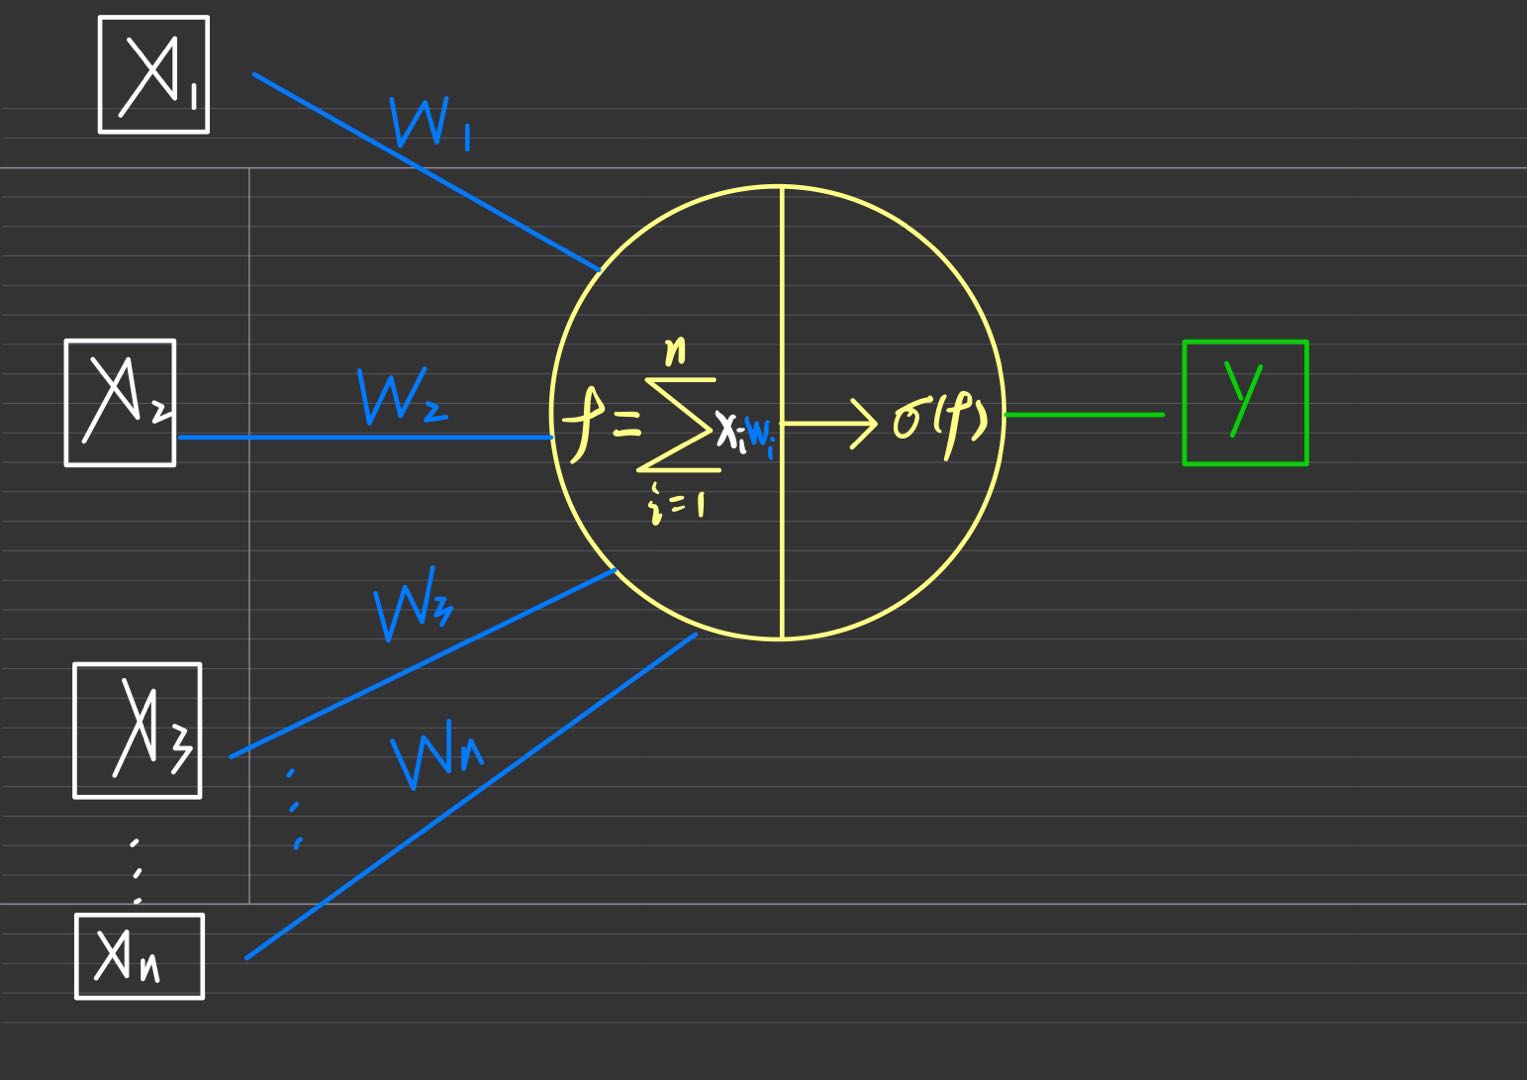 X1
W1
X2
W2
f = n ∑ i=1 xi wi → σ(f)
y
W3
X3
Wn
Xn